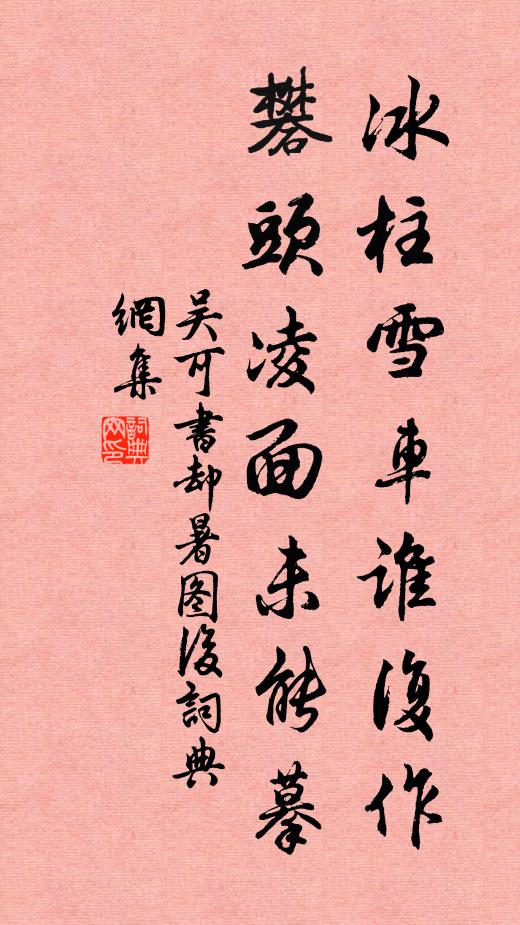 冰柱雪車誰復作
礬頭凌面未能摹
吴可書却暑图後詞典
網集
詞典網印